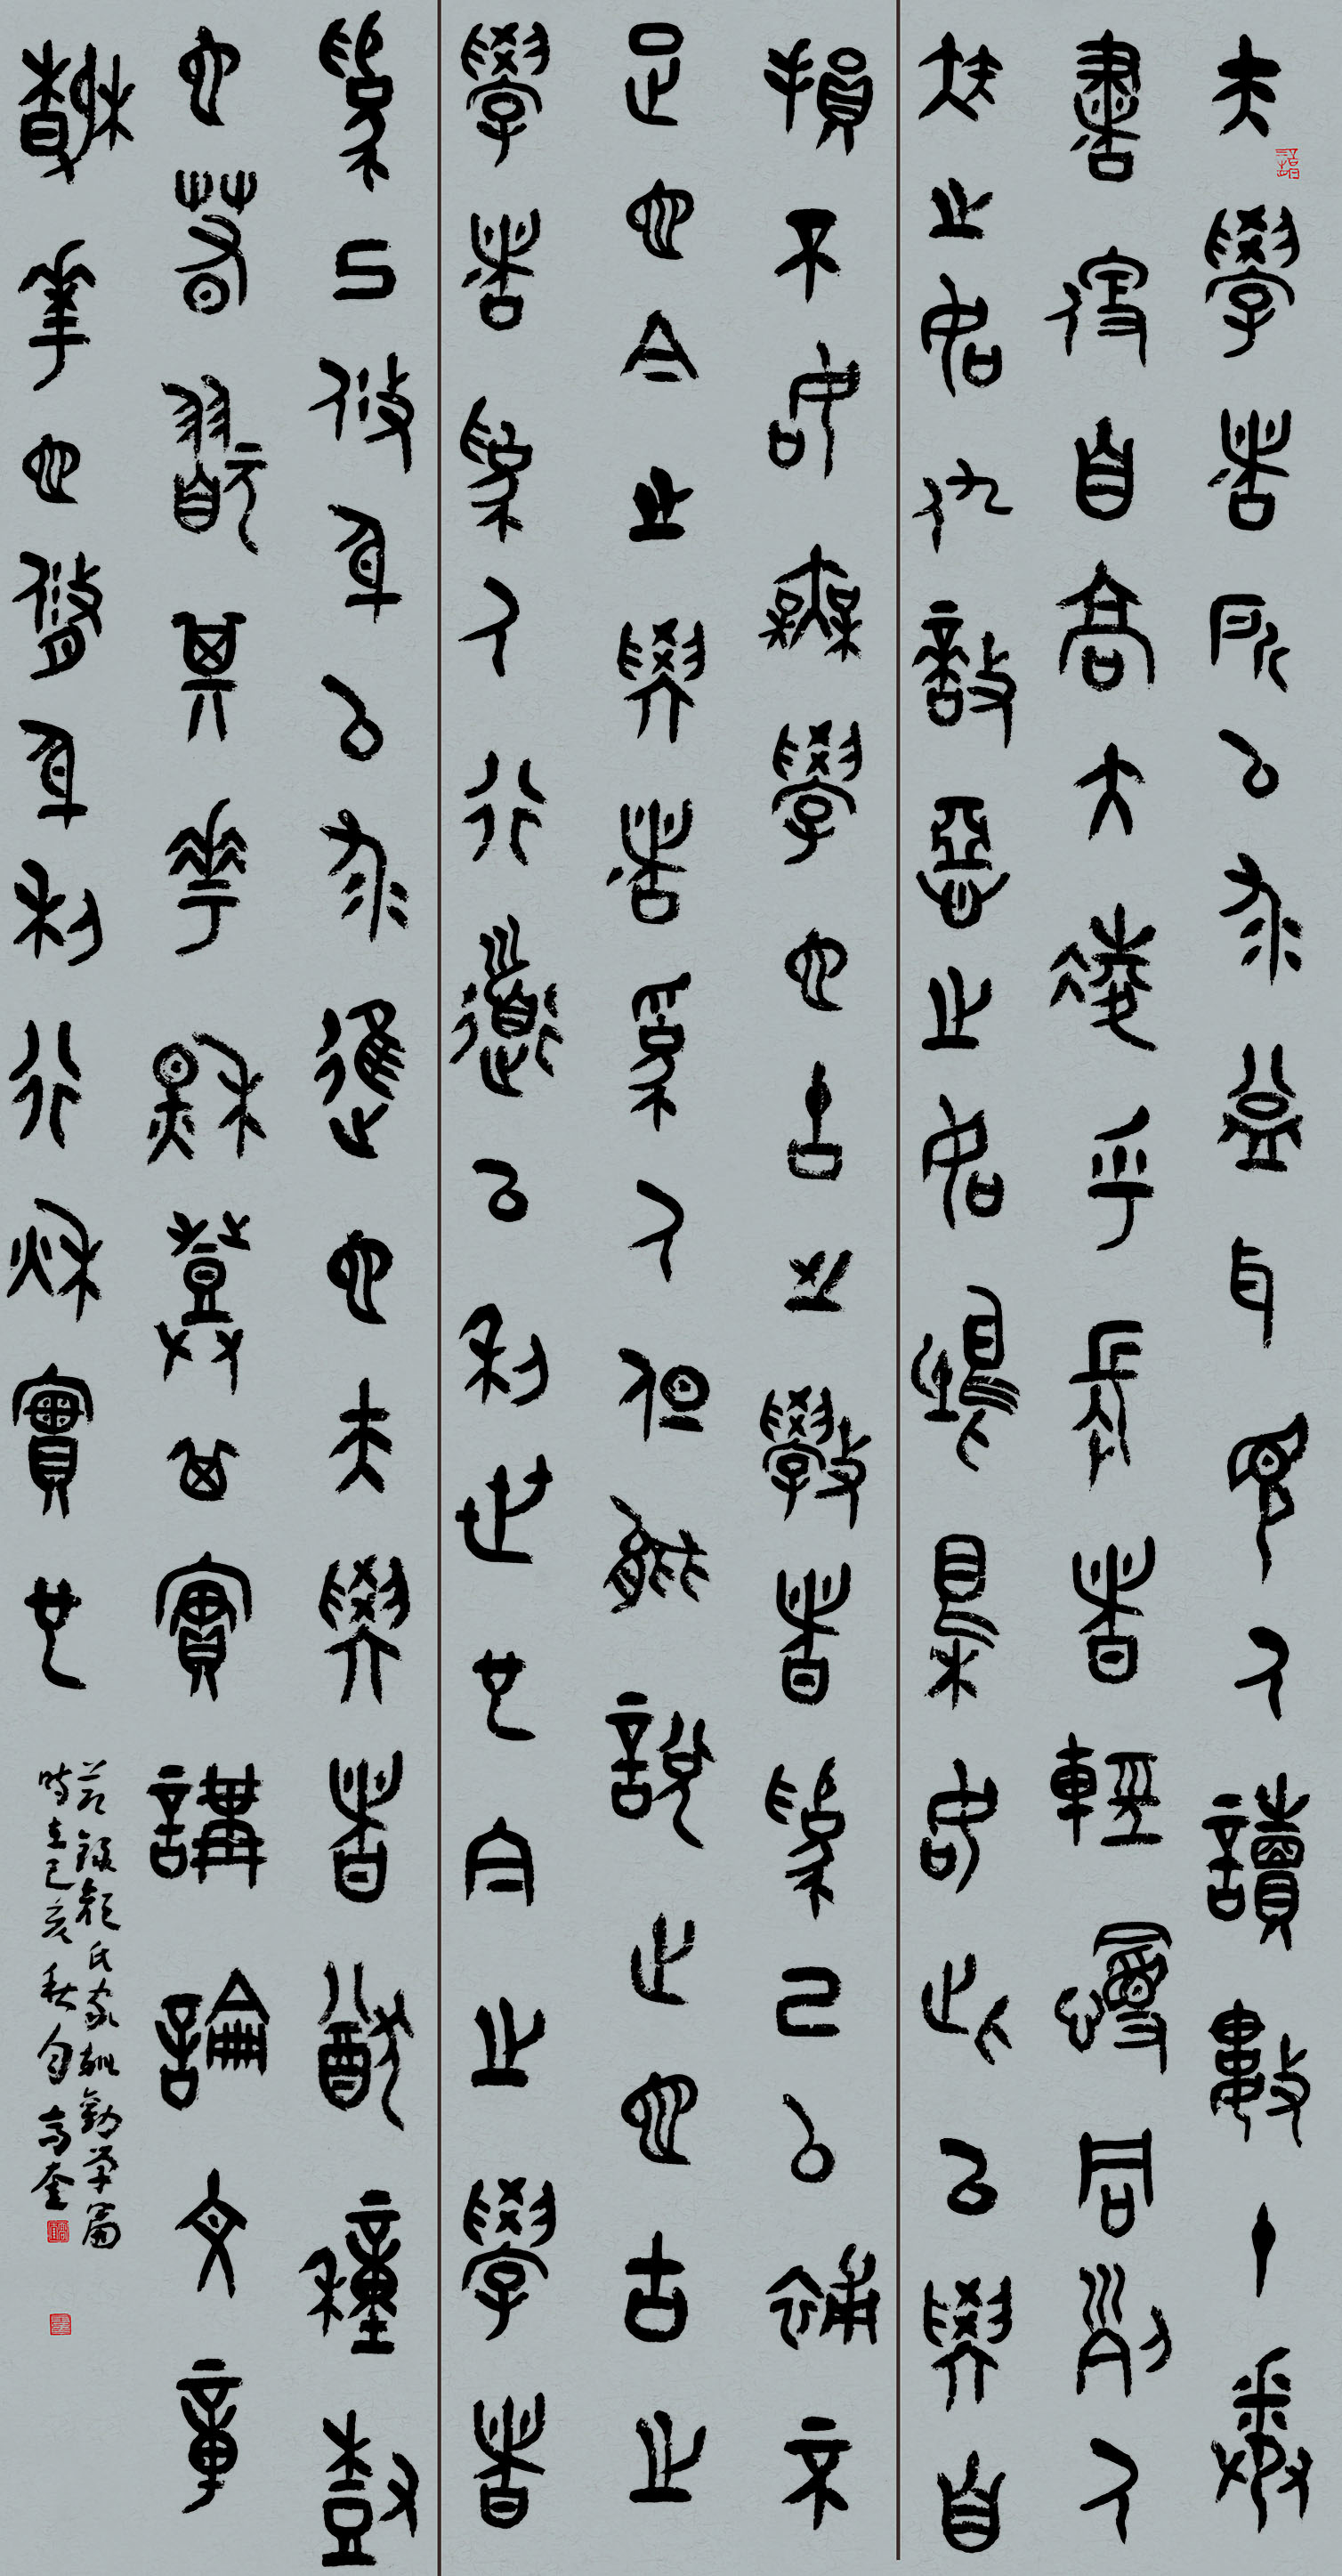 夫學者所以求益耳見人讀數十卷
書便自高大凌乎長者輕慢同列人
疾之如仇敵惡之如鴟梟如此以學自
損不如無學也古之學者為己以補不
足也今之學者為人但能說之也古之
學者為人行道以利世也今之學者
為己修身以求進也夫學者猶種樹
也春翫其華秋登其實講論文章
春華也修身利行秋實也
節錄顏氏家訓勸學篇
時在己亥秋月高奎